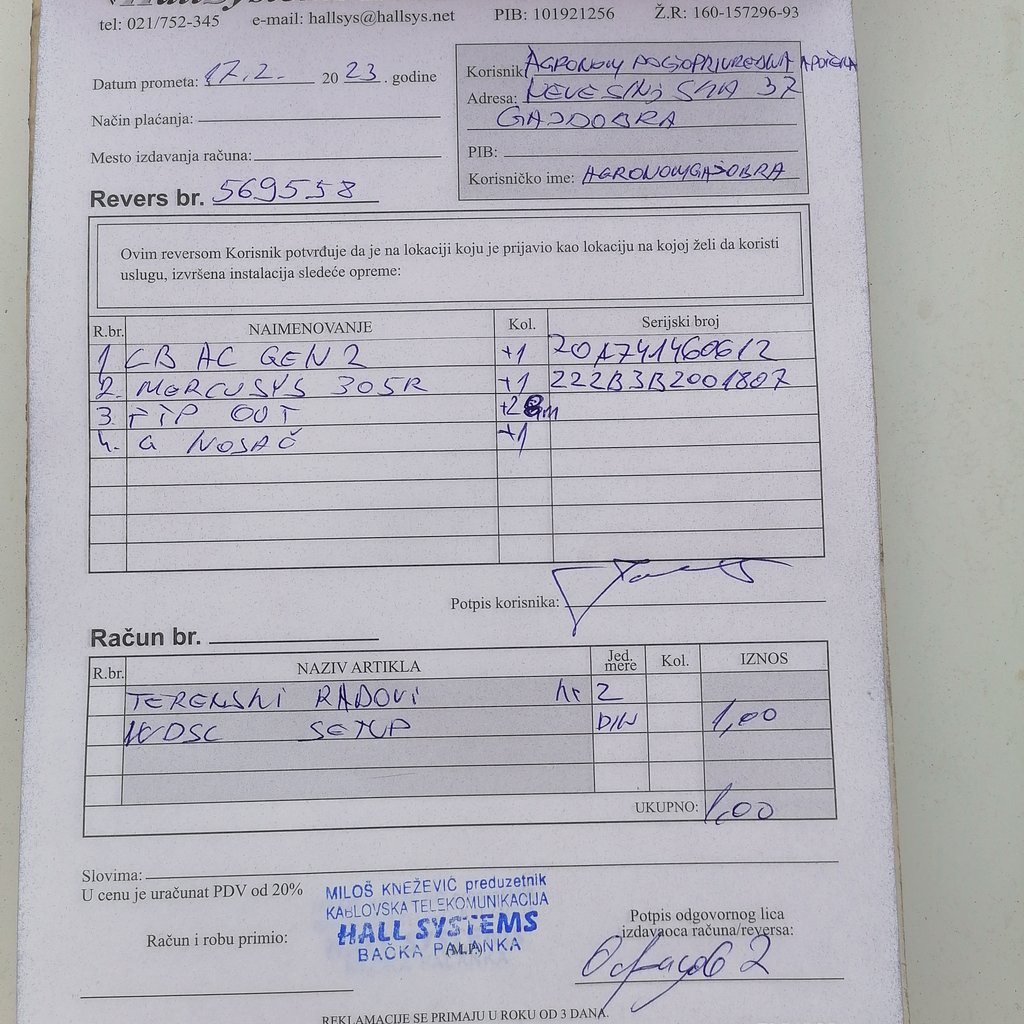 tel: 021/752-345 e-mail: hallsys@hallsys.net PIB: 101921256 Ž.R: 160-157296-93
Datum prometa: 17.2. 2023. godine
Način plaćanja:
Mesto izdavanja računa:
Revers br. 569558
Korisnik AGRONOM POLJOPRIVREDNA APOTEKA
Adresa: NEVESINJSKA 37
GAJDOBRA
PIB:
Korisničko ime: AGRONOMGAJDOBRA
Ovim reversom Korisnik potvrđuje da je na lokaciji koju je prijavio kao lokaciju na kojoj želi da koristi
uslugu, izvršena instalacija sledeće opreme:
R.br. NAIMENOVANJE Kol. Serijski broj
1 LB AC GEN 2 +1 20A741460612
2. MERCUSYS 305R +1 222B3B2001807
3. FTP OUT +28m
4. G NOSAČ +1
Potpis korisnika:
Račun br.
R.br. NAZIV ARTIKLA Jed. mere Kol. IZNOS
TERENSKI RADOVI hr 2
WDSC SETUP DIN 1,00
UKUPNO: 1,00
Slovima:
U cenu je uračunat PDV od 20%
MILOŠ KNEŽEVIĆ preduzetnik
KABLOVSKA TELEKOMUNIKACIJA
HALL SYSTEMS
BAČKA PALANKA
(M.P.)
Račun i robu primio:
Potpis odgovornog lica
izdavaoca računa/reversa:
REKLAMACIJE SE PRIMAJU U ROKU OD 3 DANA.